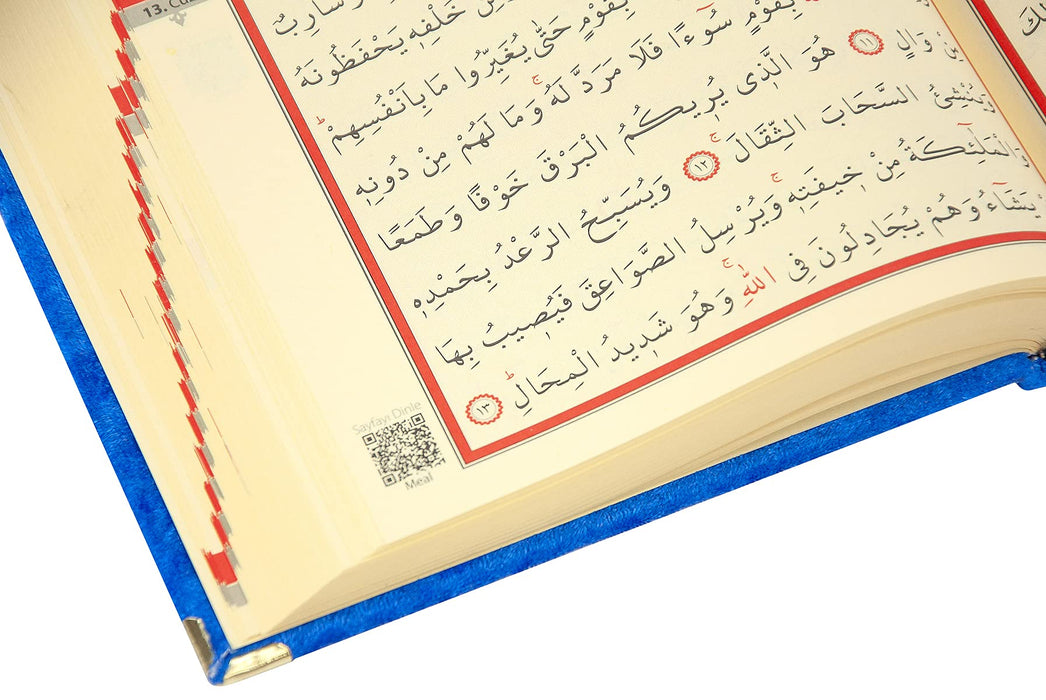 13. Cüz
وَسَارِبٌ
خَلْفِهٖ يَحْفَظُونَهُ
بِقَوْمٍ حَتّٰى يُغَيِّرُوا مَا بِاَنْفُسِهِمْؕ
بِقَوْمٍ سُوٓءًا فَلَا مَرَدَّ لَهُۚ وَمَا لَهُمْ مِنْ دُونِهٖ
مِنْ وَالٍ ١١ هُوَ الَّذٖى يُرٖيكُمُ الْبَرْقَ خَوْفًا وَطَمَعًا
وَيُنْشِئُ السَّحَابَ الثِّقَالَۚ ١٢ وَيُسَبِّحُ الرَّعْدُ بِحَمْدِهٖ
وَالْمَلٰٓئِكَةُ مِنْ خٖيفَتِهٖۚ وَيُرْسِلُ الصَّوَاعِقَ فَيُصٖيبُ بِهَا
يَشَٓاءُ وَهُمْ يُجَادِلُونَ فِى اللّٰهِۚ وَهُوَ شَدٖيدُ الْمِحَالِؕ ١٣
Sayfayı Dinle
Meal